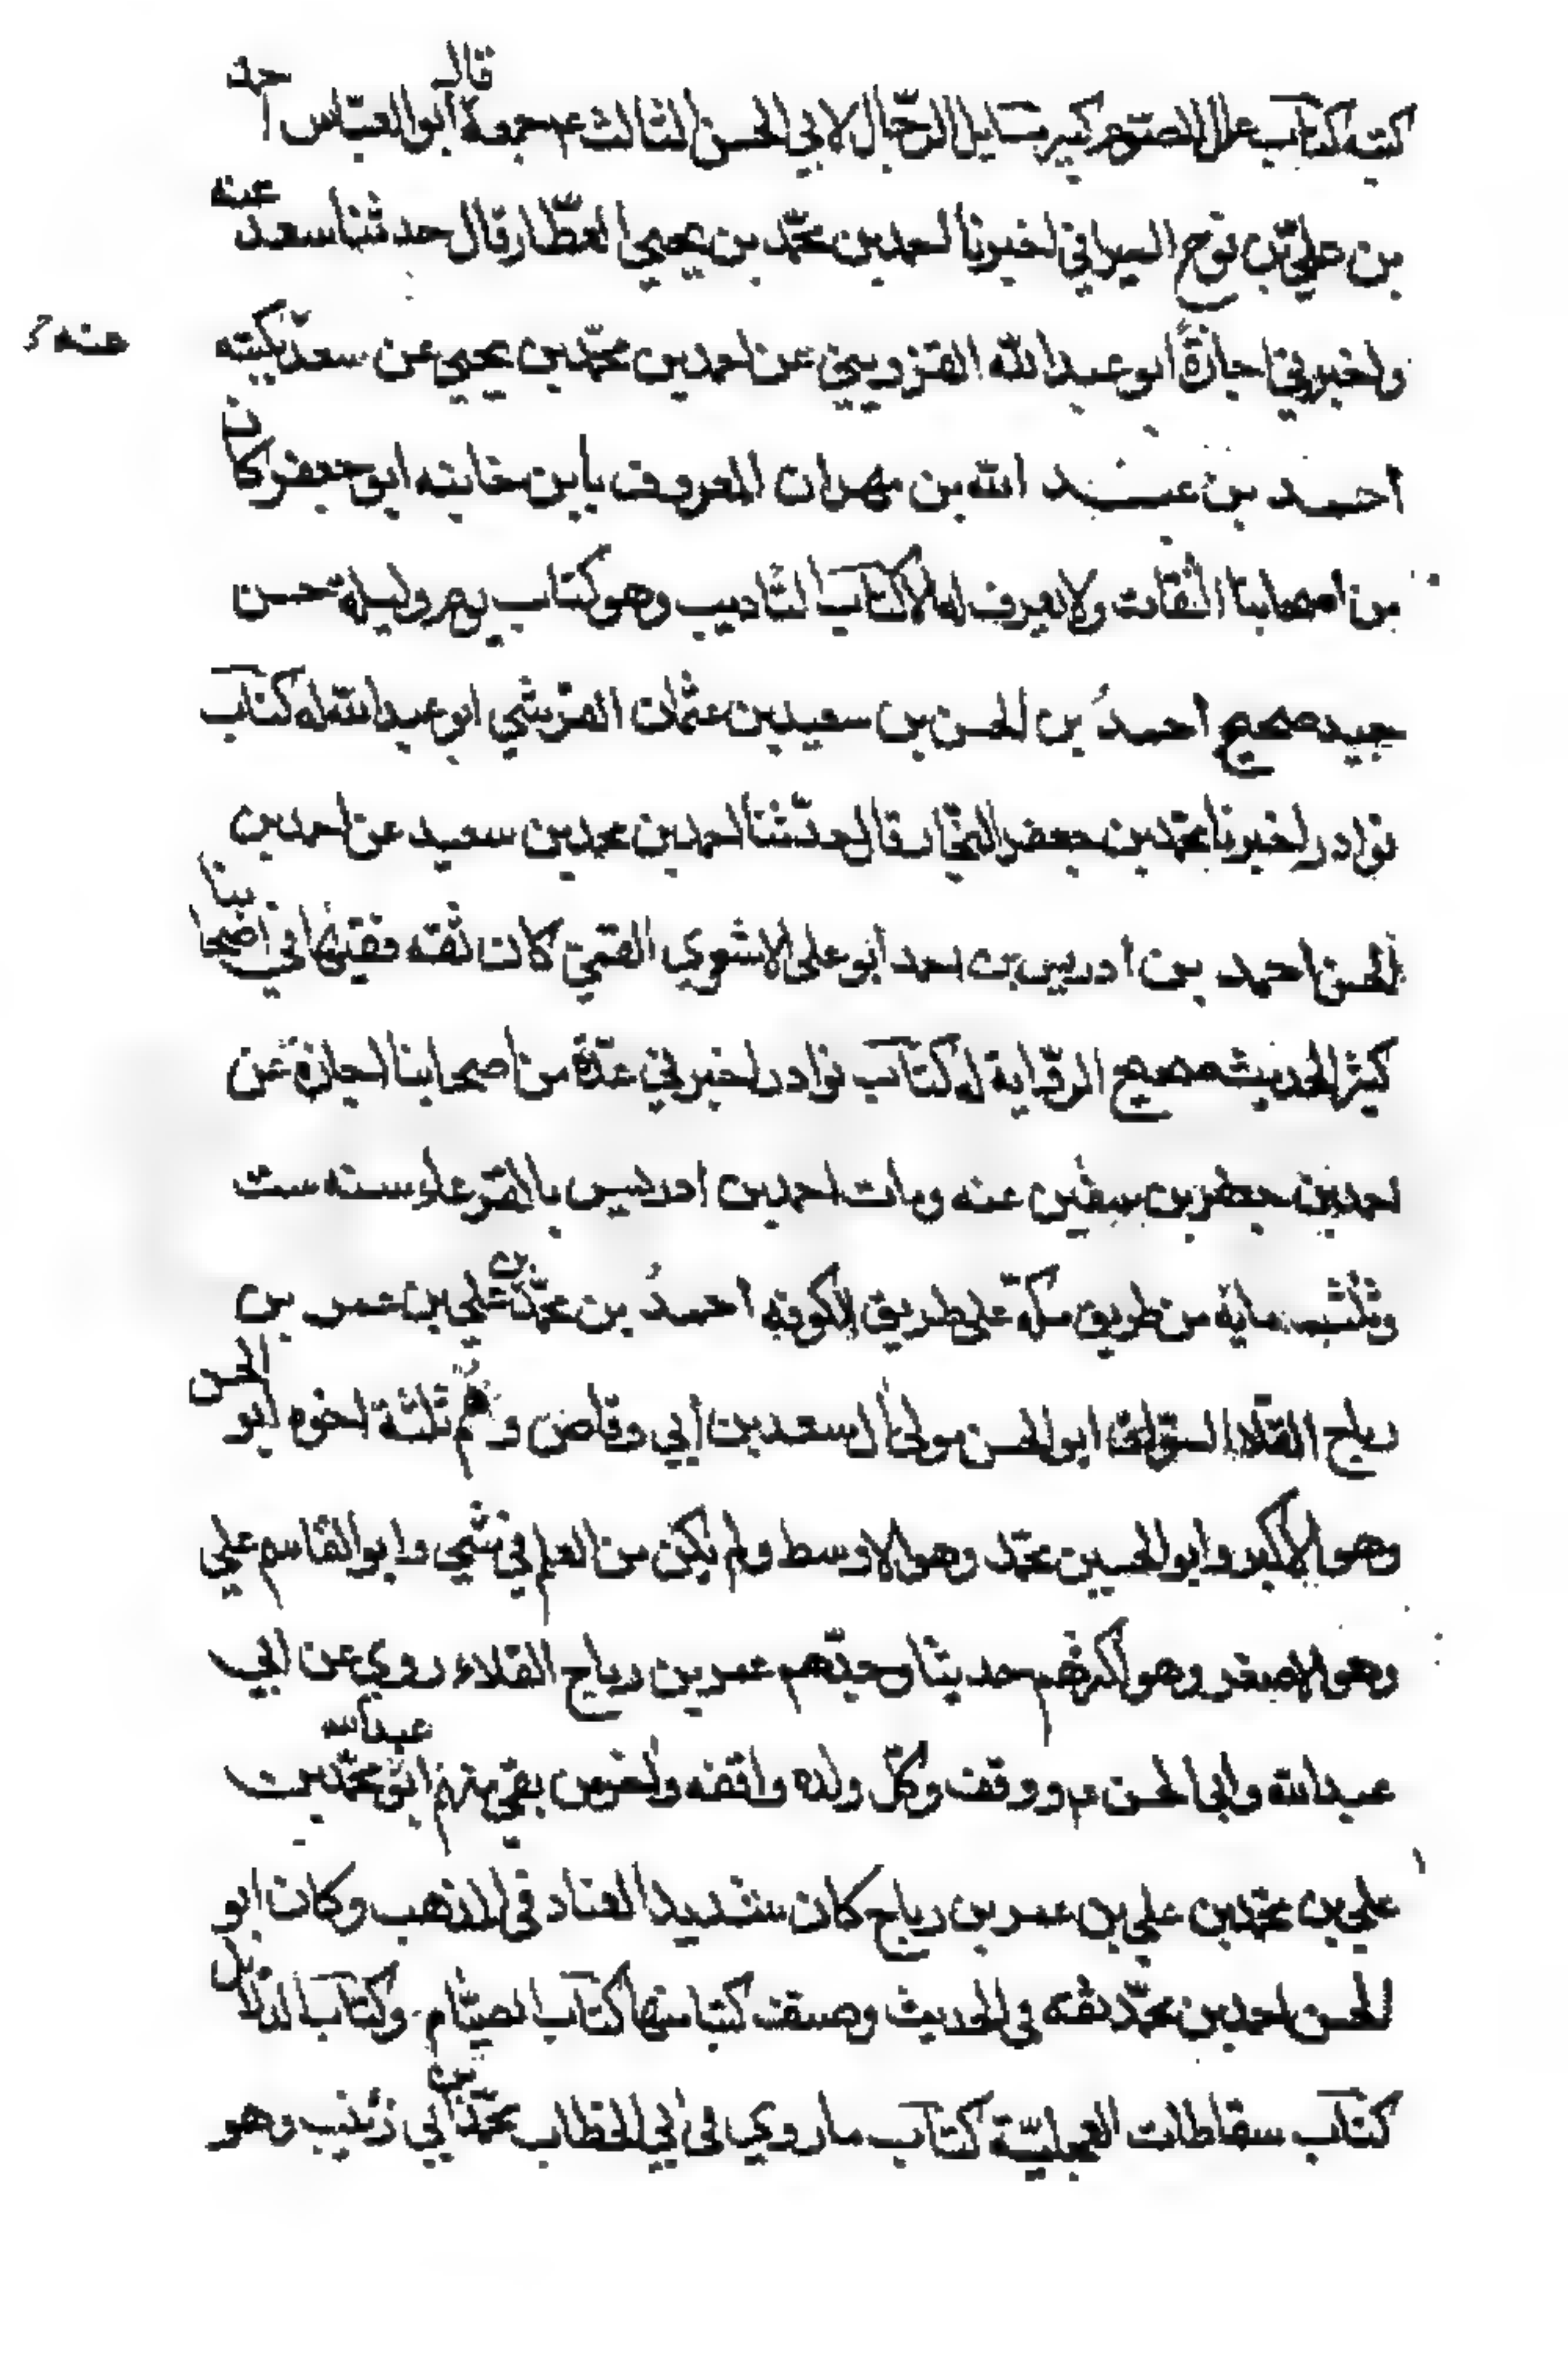 كتبه كتاب علل الصوم كبير مسايل الرجال لابي الحسن الثالث ع جمعه قال ابو العباس احمد
بن علي بن نوح السيرافي اخبرنا احمد بن محمد بن يحيى العطار قال حدثنا سعد عنه
واخبرني اجازة ابو عبد الله القزويني عن احمد بن محمد بن يحيى عن سعد بكتبه
عنه
احمد بن عبد الله بن مهران المعروف بابن خانبه ابو جعفر كان
من اصحابنا الثقات ولا يعرف له الا كتاب التاديب وهو كتاب يوم وليلة حسن
جيد صحيح احمدُ بن الحسن بن سعيد بن عثمان القرشي ابو عبد الله له كتاب
نوادر اخبرنا محمد بن جعفر النجار قال حدثنا احمد بن محمد بن سعيد عن احمد بن
الحسن احمد بن ادريس بن احمد ابو على الاشعري القمي كان ثقه فقيها في اصحابنا
كثير الحديث صحيح الرواية له كتاب نوادر اخبرني عدة من اصحابنا اجازة عن
احمد بن جعفر بن سفين عنه ومات احمد بن ادريس بالقرعاء سنه ست
وثلث ماية من طريق مكة على طريق الكوفه احمدُ بن محمد بن علي بن عمر بن
رباح القلاء السواق ابو الحسن مولى ال سعد بن أبي وقاص وهم ثلثة اخوه ابو الحسن
وهو الاكبر وابو الحسين محمد وهو الاوسط ولم يكن من العلم في شي وابو القاسم علي
وهو الاصغر وهو اكثرهم حديثا وجدهم عمر بن رباح القلاء روي عن ابي
عبد الله وابي الحسن ع ووقف وكل ولده واقفه واخر من بقي منهم ابو عبد الله محمد بن
علي بن محمد بن علي بن عمر بن رباح كان شديد العناد في المذهب وكان ابو
الحسن احمد بن محمد ثقه في الحديث وصنف كتبا منها كتاب الصيام وكتاب الدلائل
كتاب سقاطات العجلية كتاب ما روي في ابي الخطاب محمد بن ابي زينب وهو